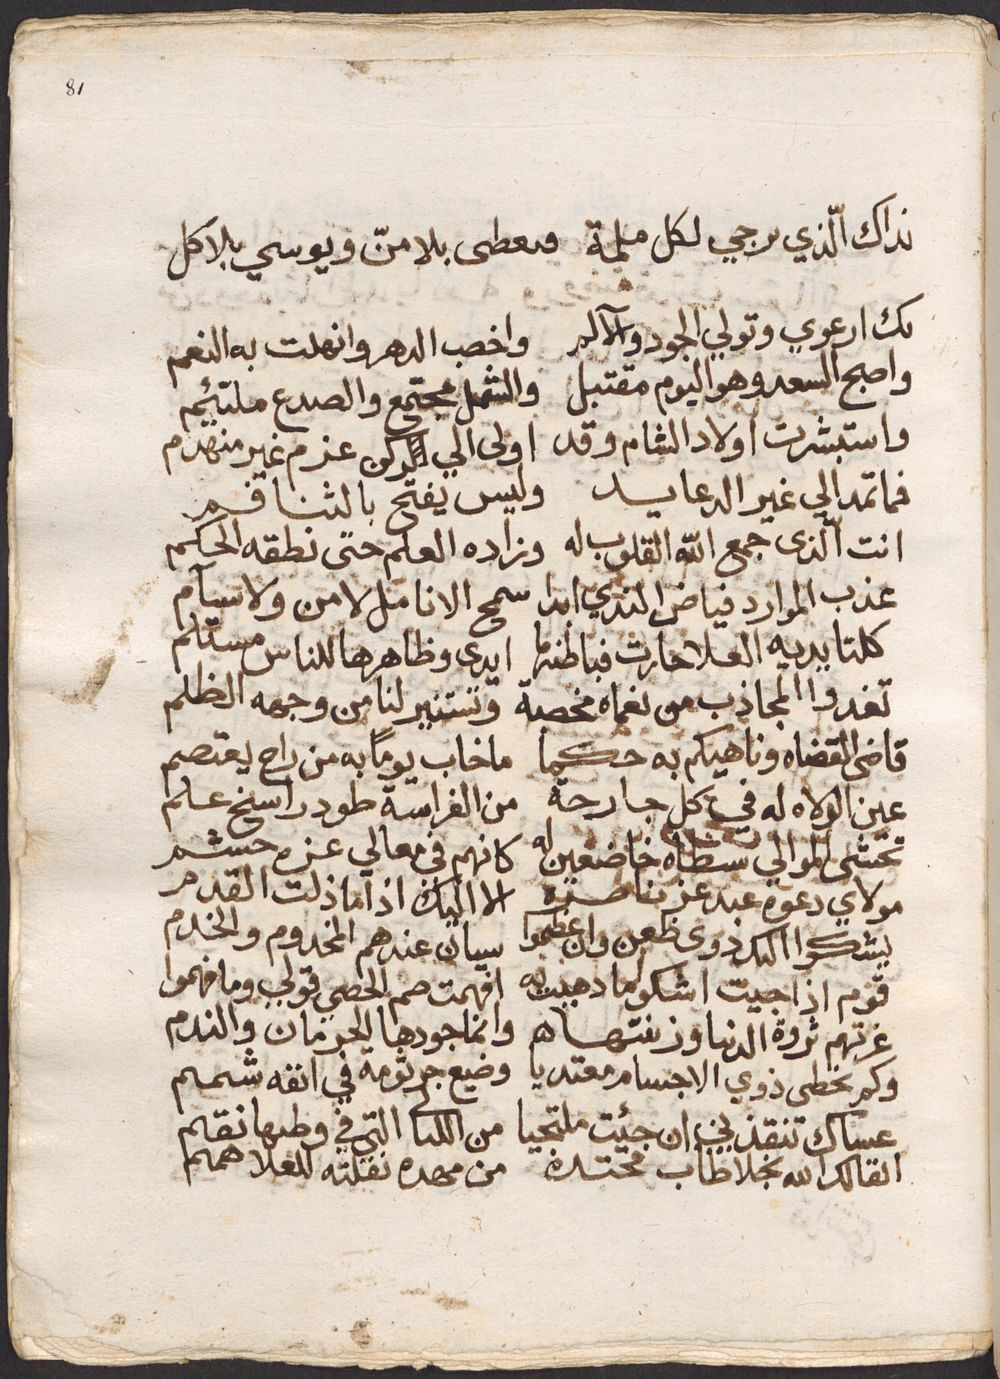 81
نذاك الّذي يرجي لكل ملمة فيعطى بلا منّ ويوسي بلا كل
بك ارعوي وتولي الجود والالم واخصب الدهر وانهلت به النعم
واصبح السعد وهو اليوم مقتبل والشمل مجتمع والصدع ملتئم
واستبشرت اولاد الشام وقد اولى الي الركن عزم غير منهدم
فما تمد الي غير الدعا يد وليس يفتح بالثنا فم
انت الّذى جمع الله القلوب له وزاده العلم حتى نطقه الحكم
عذب الموارد فياض الندي ابدا سمح الانامل لا من ولا سيآم
كلتا يديه العلا حازت فباطنها ايدى وظاهرها للناس مستلم
تغدوا المجاذب من نعماه مخصبة وتستنير لنا من وجهه الظلم
قاضى القضاه وناهيكم به حكما ما خاب يومًا به من راح يعتصم
عين الولاه له في كل جارحة من الفراسة طود راسخ علم
تخشى الموالي سطاه خاضعين له كانهم في معالي عزه حشم
مولاي دعوة عبد عز ناصره الا اليك اذا ما ذلت القدم
يشكوا اليك ذوى ظعن وان عظموا سيان عندهم المخدوم والخدم
قوم اذا جيت اشكو ما دهيت به افهمت صم الحصي قولي وما فهموا
غرتهم ثروة الدنيا وزينتها وانما جودها الحرمان والندم
وكم تخطى ذوي الاجسام معتديا وضيع جرثومة في انفه شمم
عساك تنقذني ان جيئت ملتجيا من التي في وطبها نقم
القا لك الله نجلا طاب محتده من مهده نقلته للعلا همم